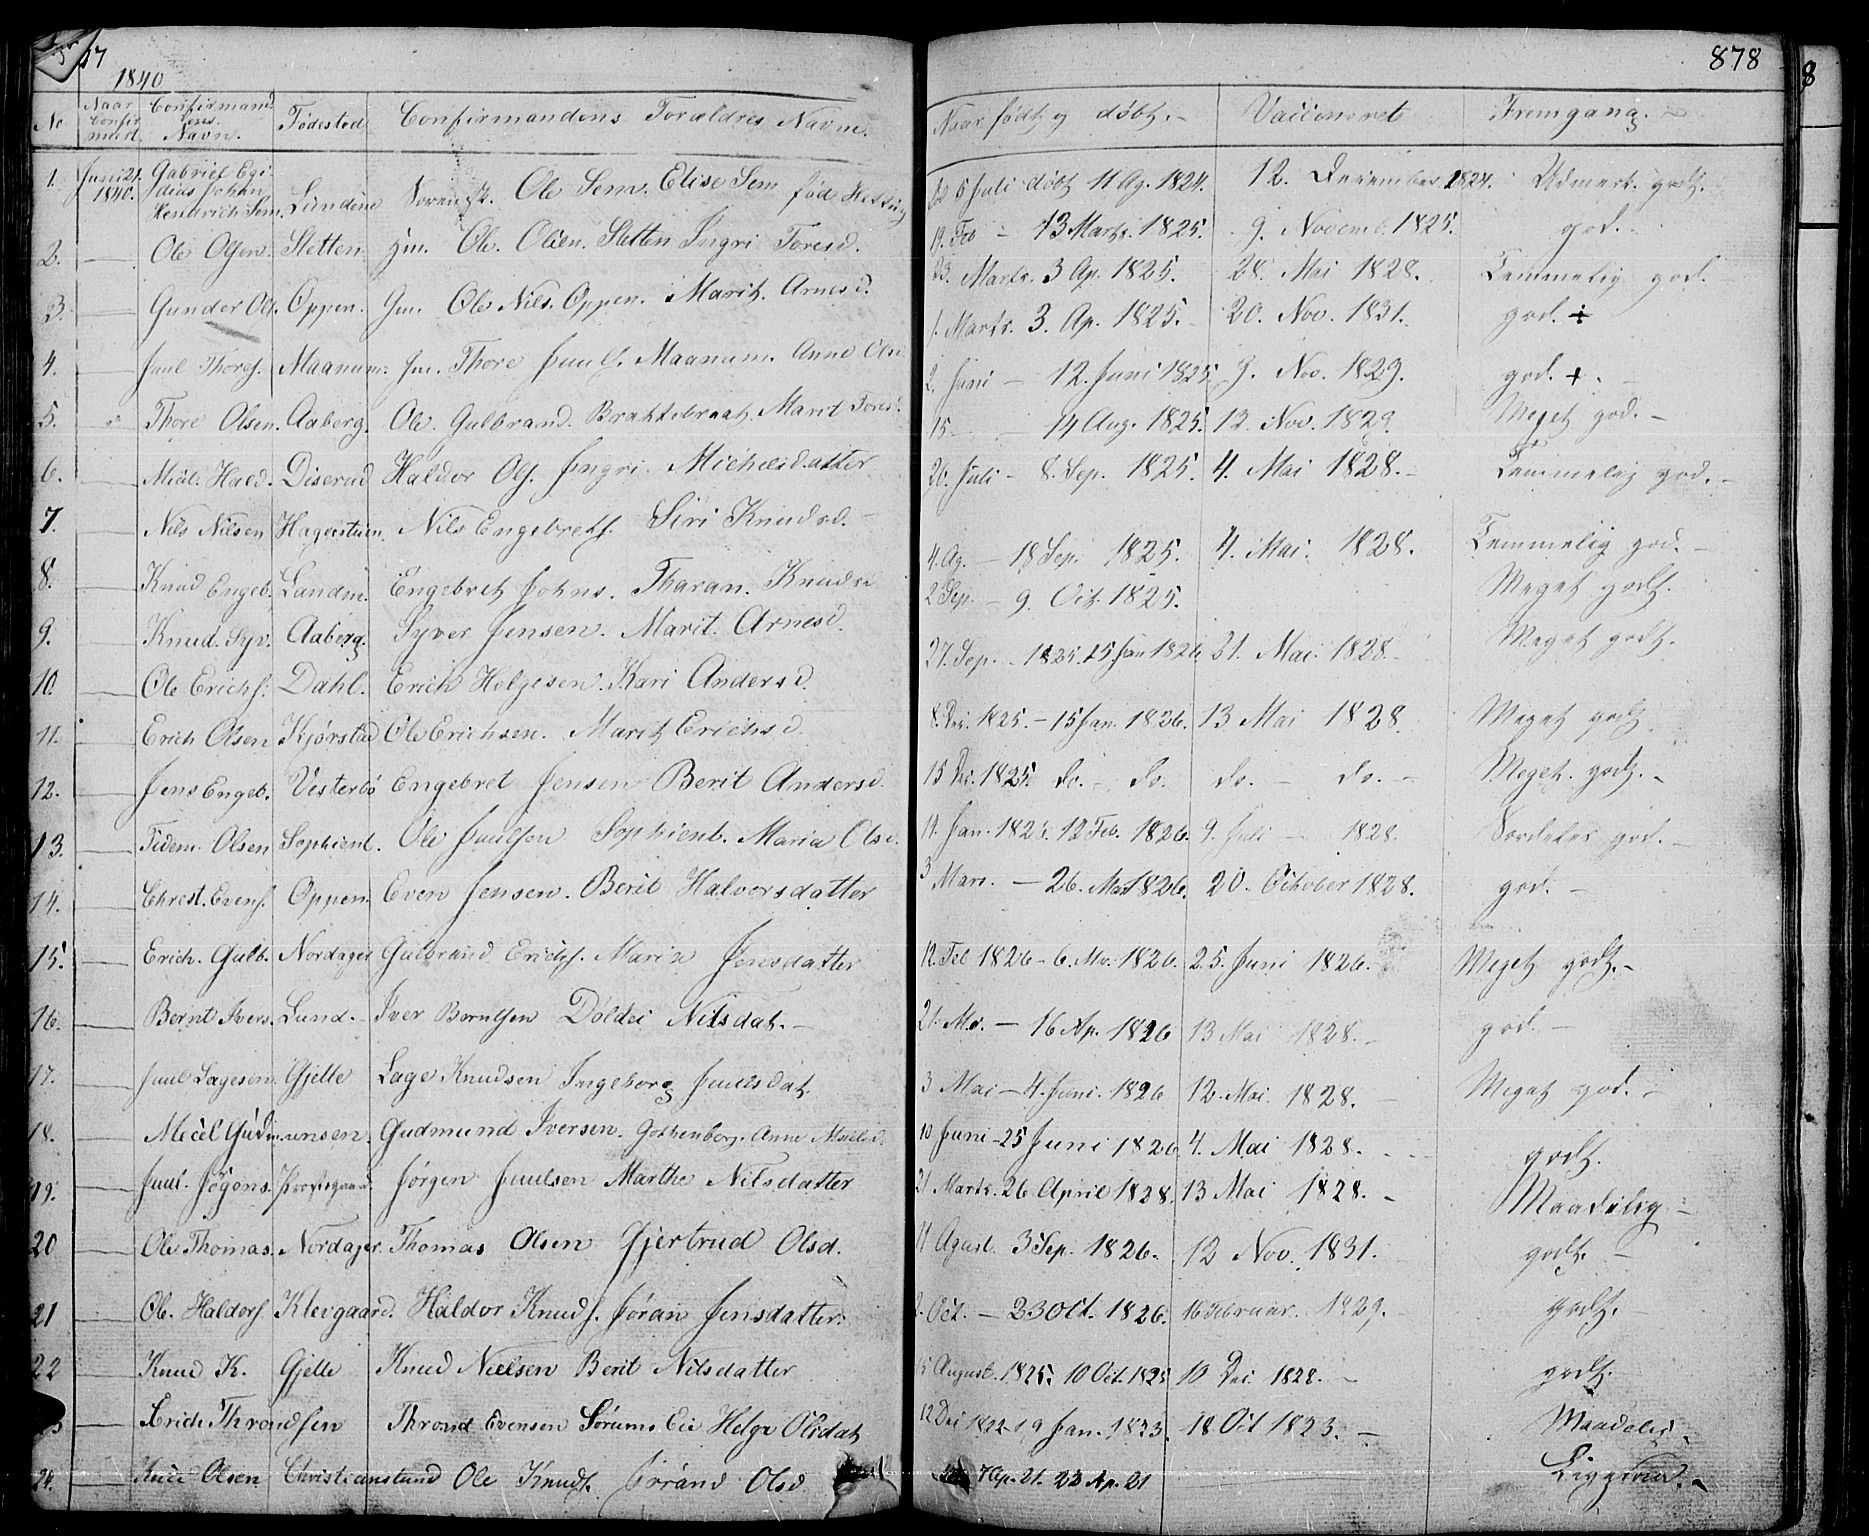 17
878
1840
No Naar Confirmerd. Confirmandens Navn. Fødested Confirmandens Forældres Navne. Naar født og døbt. Vaccineret Fremgang.
1. Juni 21. 1840. Gabriel Egidius Johan Hendrich Sem. Lundene Ole Sem. Elise Sem fød 5 Juli døbt 11 Ag. 1824. 12. December 1824. Udmerk. godt.
2. Ole Olsen. Sletten. Gm. Ole Olsen. Sletten Ingri Toresd. 19. Feb – 13 Marts. 1825. 9. Novemb. 1825. god.
3. Gunder Ols. Oppen. Gm. Ole Nils. Oppen. Marit Arnesd. 23. Marts. 3 Ap. 1825. 28. Mai 1828. Temmelig god.
1. Marts. 3. Ap. 1825. 20. Nov. 1831. god. ÷
4. Juul Thores. Maanum. Gm. Thore Juuls. Maanum. Anne Ols 2. Juni – 12. Juni 1825 9. Nov. 1829. god. +.
5. Thore Olsen. Aaberg. Ole Gulbrand. Brakkebraat. Marit Tores. 15 – 14 Aug. 1825. 12. Nov. 1829. Meget god. –
6. Micl. Hald. Diserud Haldor Ols. Ingri Michelsdatter 20. Juli – 8. Sep. 1825. 4. Mai 1828. – Temmelig god. –
7. Nils Nilsen Hagerstuen. Nils Engebrets. Siri Knudsd. 4. Ag. – 18 Sep. 1825. 4. Mai. 1828. Temmelig god. –
8. Knud Engeb. Landin. Engebret Johns. Tharan. Knudsd 2 Sep. – 9. Oct. 1825. Meget godt.
9. Knud. Syv. Aaberg. Syver Jensen. Marit. Arnesd. 27. Sep. 1825. 15 Jan 1826 21. Mai. 1828 Meget godt.
10. Ole Erichs. Dahl. Erich Helgesen. Kari Andersd. 8. Dec. 1825. – 15 Jan. 1826. 13 Mai 1828. Meget godt
11. Erich Olsen Kjørstad Ole Erichsen. Marit Erichsd. 15 Dec. 1825. do. – do. do. – do. – Meget. godt. –
12. Jens Engeb. Vesterbø Engebret Jensen Berit Andersd.
13. Tidem. Olsen Sophienl. Ole Juulsen Sophienl. Maria Olsd. 19. Jan. 1825. 12 Feb. 1826. 9. Juli – 1828. Særdeles god. –
14. Christ. Evens. Oppen. Even Jensen. Berit Halvorsdatter 3 Mars. – 26. Mar 1826. 20. October 1828. god. –
15. Erich. Gulb. Nordager Gulbrand Erichs. Marin Jensdatter 12. Feb 1826 – 6. Mr. 1826. 25. Juni 1826. Meget godt. –
16. Bernt Ivers. Lund. – Iver Berntsen Døldei Nilsdat. – 21. Mr. – 16 Ap. 1826 13 Mai 1828. – god. –
17. Juul Lagesen. Gjelle Lage Knudsen Ingeborg Juulsdat. 3 Mai – 4. Juni. 1826 12. Mai. 1828. – Meget god. –
18. Micel Gudmunsen. Gudmund Iversen. Gothenborg. Anne Micelsd. 10 Juni – 25 Juni 1826 4. Mai 1828. godt.
19. Juul. Jøgens. Jørgen Juulsen Marthe Nilsdatter 21 Marts. 26 April 1828. 13 Mai 1828. – Maadelig –
20 Ole Thomas. Nordager. Thomas Olsen Gjertrud Olsd. 11 Agust. 3 Sep. 1826. 12 Nov. 1831. godt. –
21 Ole. Haldors. Klevgaard. Haldor Knuds. Jøran Jensdatter. Oct. – 23 Oct. 1826. 16 Februar. 1829. godt.
22 Knud K. Gjelle Knud Nielsen Berit Nilsdatter 5 August. 1825. 10 Oct. 1825 10 Dec. 1828. – godt.
Erich Throndsen Thrond Evensen Sørums Eie Helge Olsdat 12 Dec 1822 19 Jan. 1823. 18 Oct 1823. – Maadelig.
24. Olsen Christianslund Ole Knuds. Jørand Olsd 7 Ap. 21. 23 Ap. 21